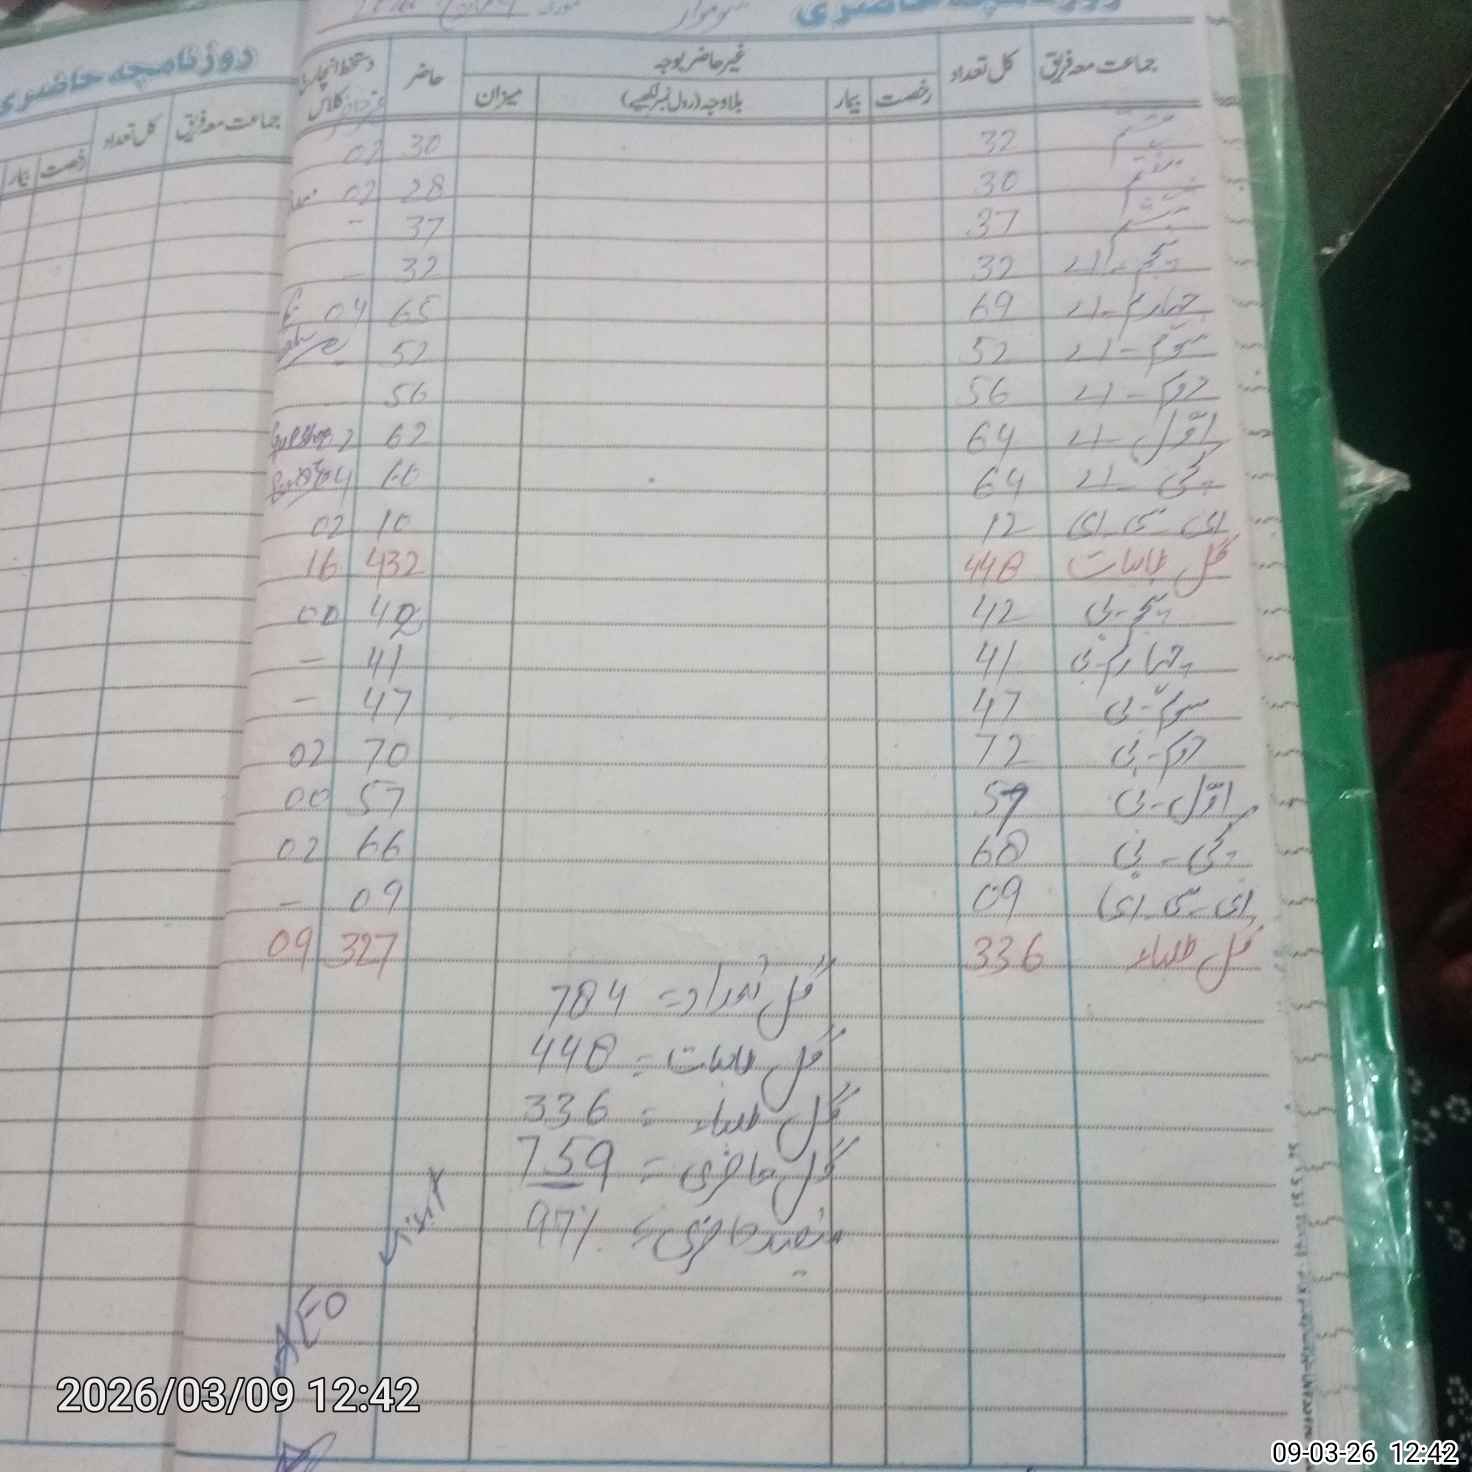 روزنامچہ حاضری
سوموار
جماعت معہ فریق کل تعداد غیر حاضر بوجہ حاضر دستخط انچارج کلاس
رخصت بیمار بلاوجہ (رول نمبر لکھیے) میزان
ہشتم 32 30 02
ہفتم 30 28 02
ششم 37 37 -
پنجم-اے 32 32 -
چہارم-اے 69 65 04
سوم-اے 52 52
دوم-اے 56 56
اوّل-اے 64 62 2
کچی-اے 64 60 04
ای سی ای 12 10 02
کل طالبات 448 432 16
پنجم-بی 42 42 00
چہارم-بی 41 41 -
سوم-بی 47 47 -
دوم-بی 72 70 02
اوّل-بی 57 57 00
کچی-بی 68 66 02
ای-سی-ای 09 09 -
کل طلباء 336 327 09
کل تعداد = 784
کل طالبات = 448
کل طلباء = 336
کل حاضری = 759
فیصد حاضری = 97%
visit
AEO
روزنامچہ حاضری
جماعت معہ فریق کل تعداد
رخصت بیمار
2026/03/09 12:42
09-03-26 12:42